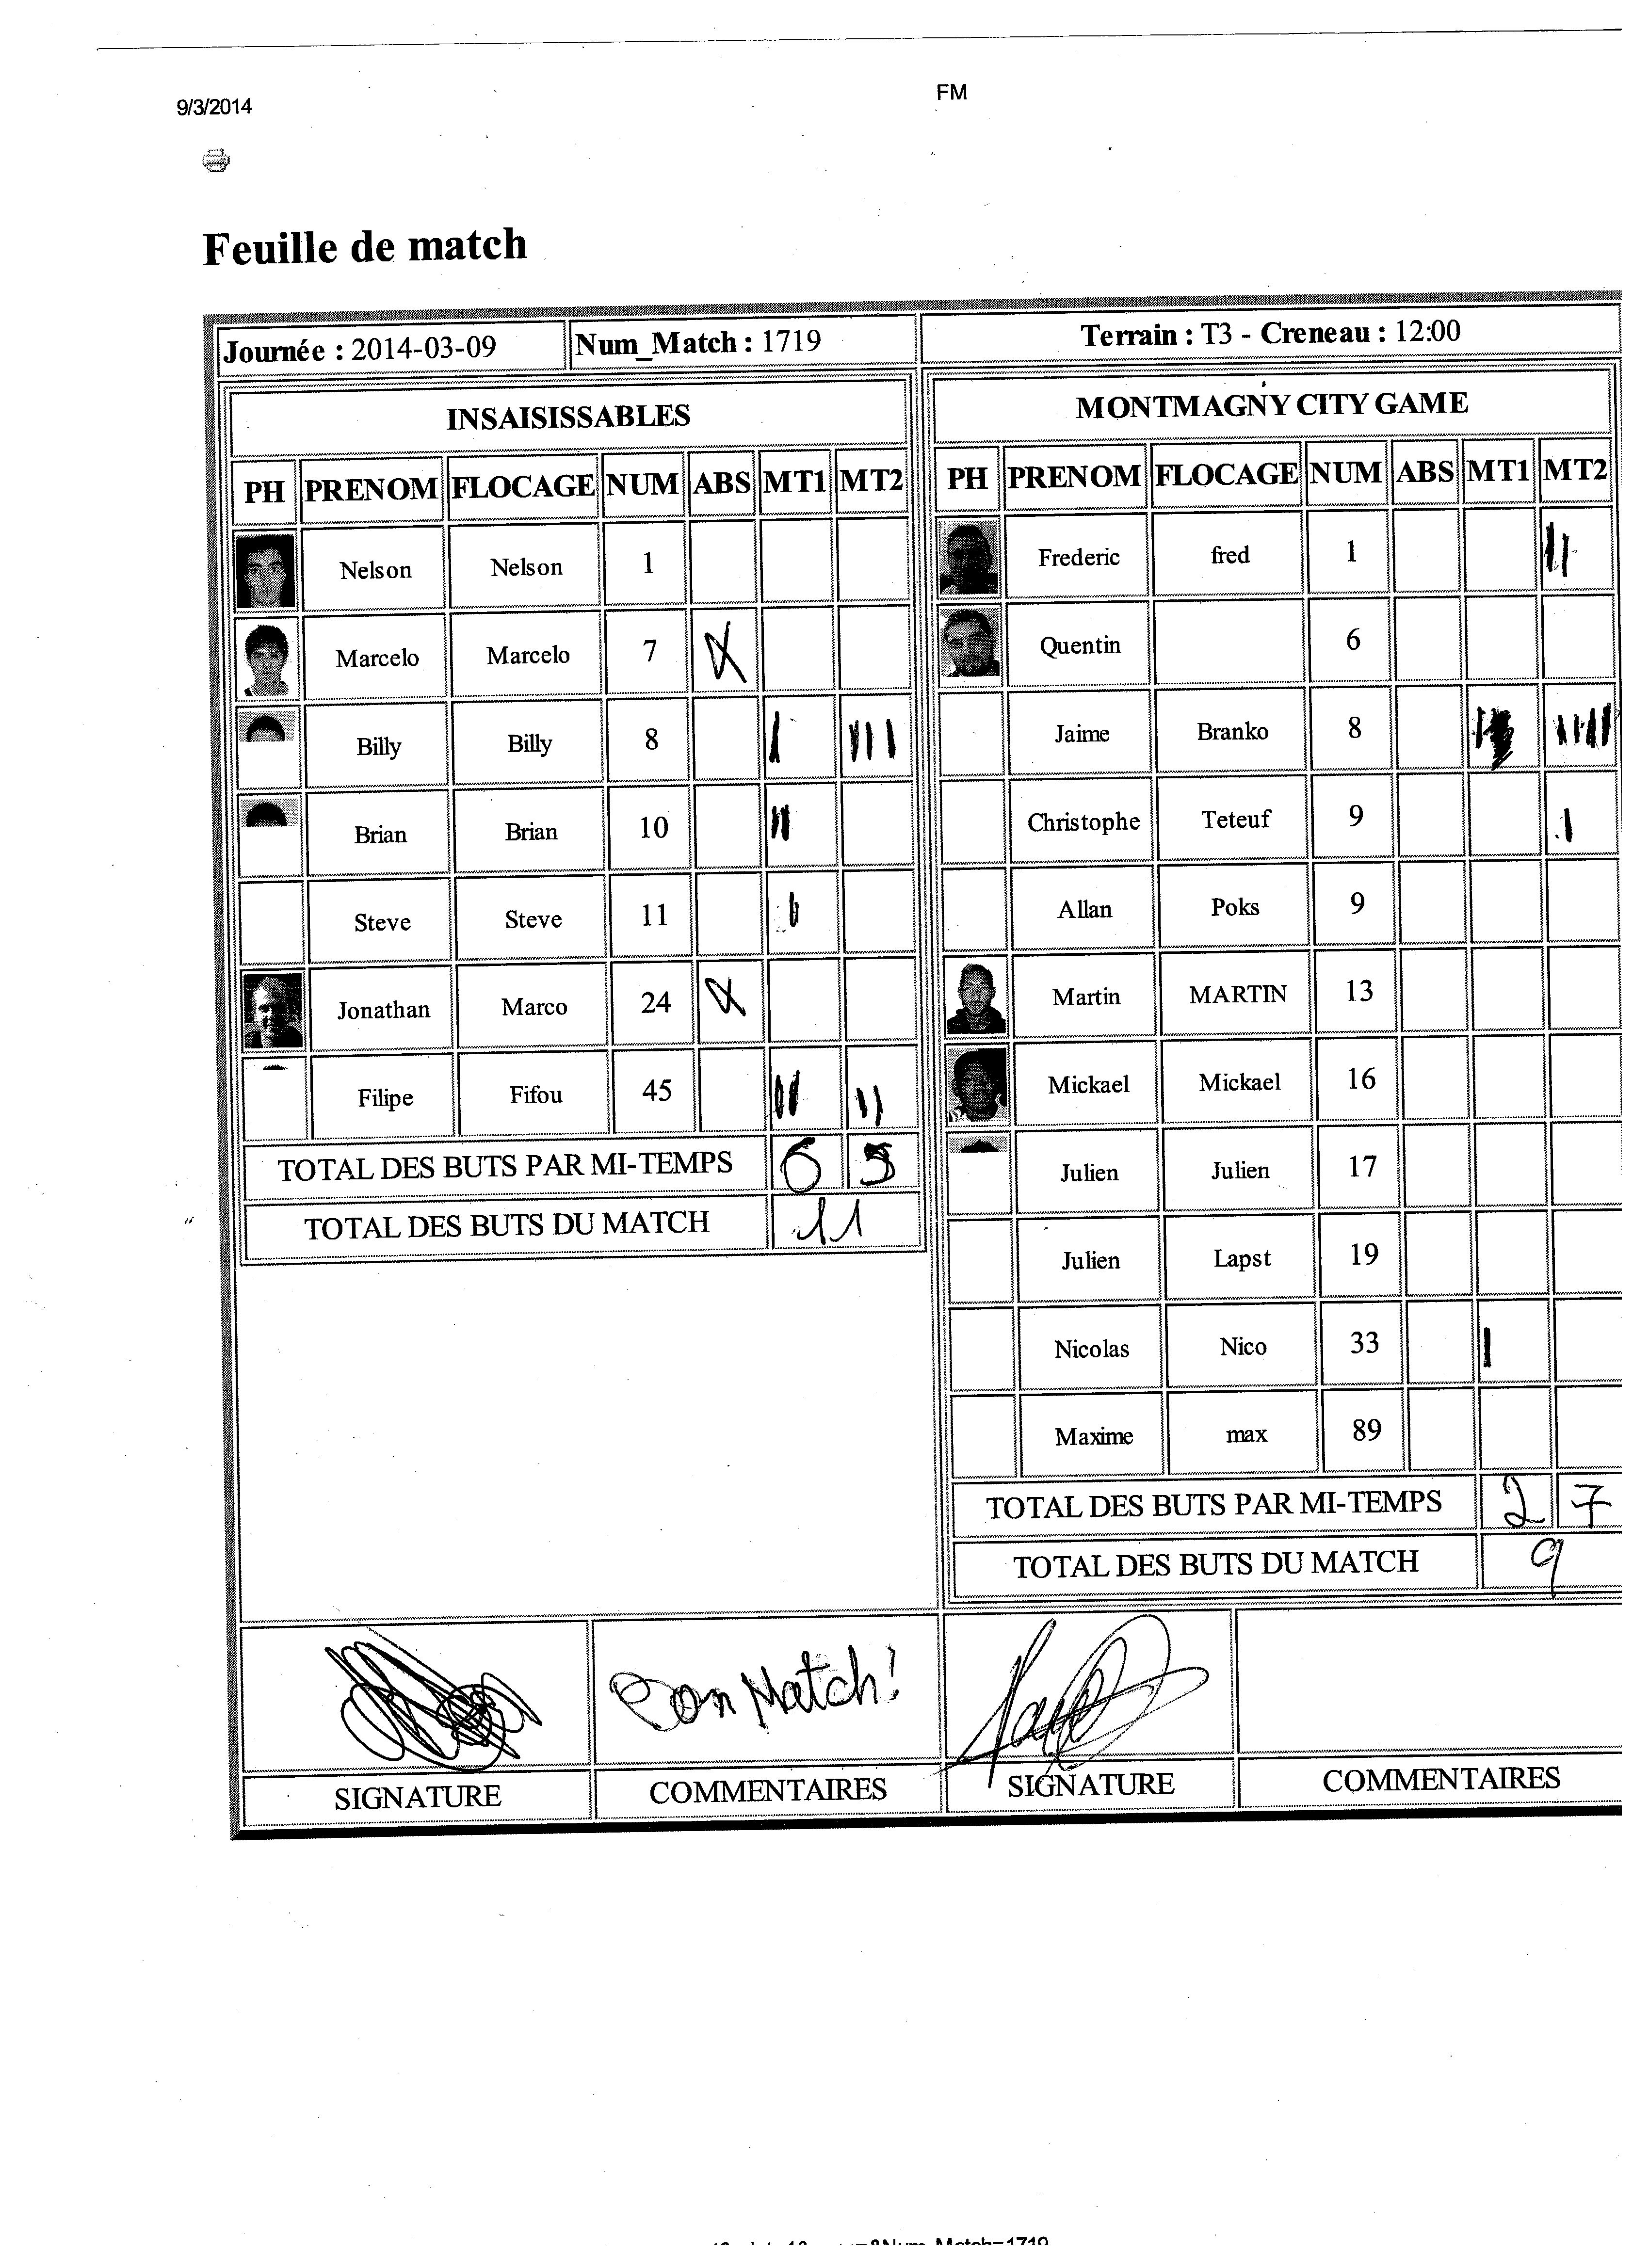 9/3/2014 FM
Feuille de match
Journée : 2014-03-09 Num_Match : 1719 Terrain : T3 - Creneau : 12:00
INSAISISSABLES
PH PRENOM FLOCAGE NUM ABS MT1 MT2
Nelson Nelson 1
Marcelo Marcelo 7 X
Billy Billy 8 I III
Brian Brian 10 II
Steve Steve 11 I
Jonathan Marco 24 X
Filipe Fifou 45 II II
TOTAL DES BUTS PAR MI-TEMPS 6 5
TOTAL DES BUTS DU MATCH 11
MONTMAGNY CITY GAME
PH PRENOM FLOCAGE NUM ABS MT1 MT2
Frederic fred 1 II
Quentin 6
Jaime Branko 8
Christophe Teteuf 9 I
Allan Poks 9
Martin MARTIN 13
Mickael Mickael 16
Julien Julien 17
Julien Lapst 19
Nicolas Nico 33 I
Maxime max 89
TOTAL DES BUTS PAR MI-TEMPS 2 7
TOTAL DES BUTS DU MATCH 9
Bon Match!
SIGNATURE COMMENTAIRES SIGNATURE COMMENTAIRES
Num_Match=1719